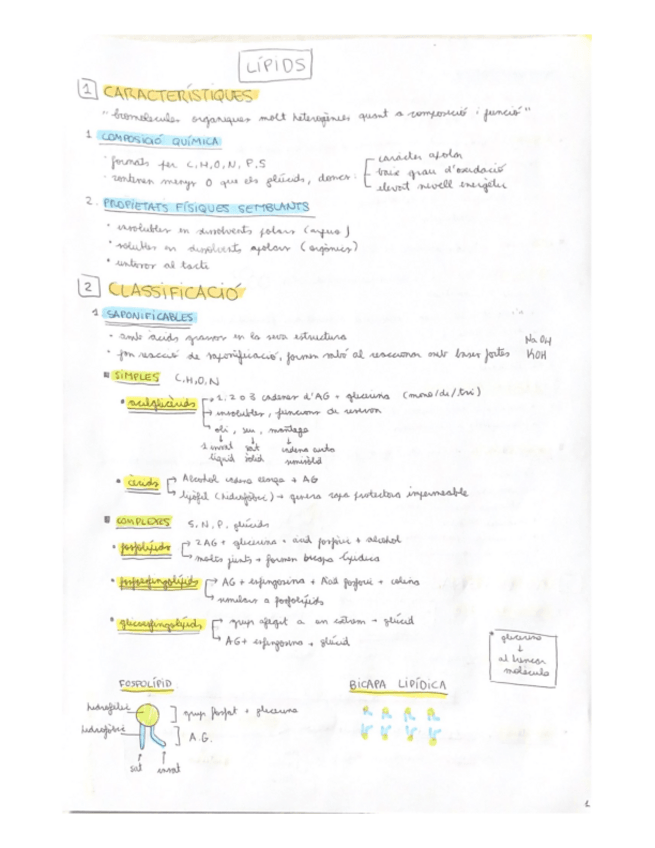 LÍPIDS
1 CARACTERÍSTIQUES
"biomolècules orgàniques molt heterogènies quant a composició i funció"
1 COMPOSICIÓ QUÍMICA
· formats per C, H, O, N, P, S
· contenen menys O que els glúcids, doncs:
caràcter apolar
baix grau d'oxidació
elevat nivell energètic
2. PROPIETATS FÍSIQUES SEMBLANTS
· insolubles en dissolvents polars (aigua)
· solubles en dissolvents apolars (orgànics)
· untuosos al tacte
2 CLASSIFICACIÓ
1 SAPONIFICABLES
· amb àcids grassos en la seva estructura
· fan reacció de saponificació, formen sabó al reaccionar amb bases fortes NaOH KOH
SIMPLES C, H, O, N
· acilglicèrids → 1, 2 o 3 cadenes d'AG + glicerina (mono/di/tri)
→ insolubles, funcions de reserva
→ oli, seu, mantega
↓ ↓ ↓
insat sat cadena curta
líquid sòlid semisòlid
· cèrids → Alcohol cadena llarga + AG
→ lipòfil (hidrofòbic) → genera capa protectora impermeable
COMPLEXES S, N, P, glúcids
· fosfolípids → 2AG + glicerina + àcid fosfòric + alcohol
→ moltes junts → formen bicapa lipídica
· fosfoesfingolípids → AG + esfingosina + Àcid fosfòric + colina
→ similars a fosfolípids
· glucoesfingolípids → grup afegit a un extrem → glúcid
→ AG + esfingosina + glúcid
* glicerina
↓
al brancar
molècula
FOSFOLÍPID
hidrofílic
hidrofòbic
grup fosfat + glicerina
A.G.
sat insat
BICAPA LIPÍDICA
1